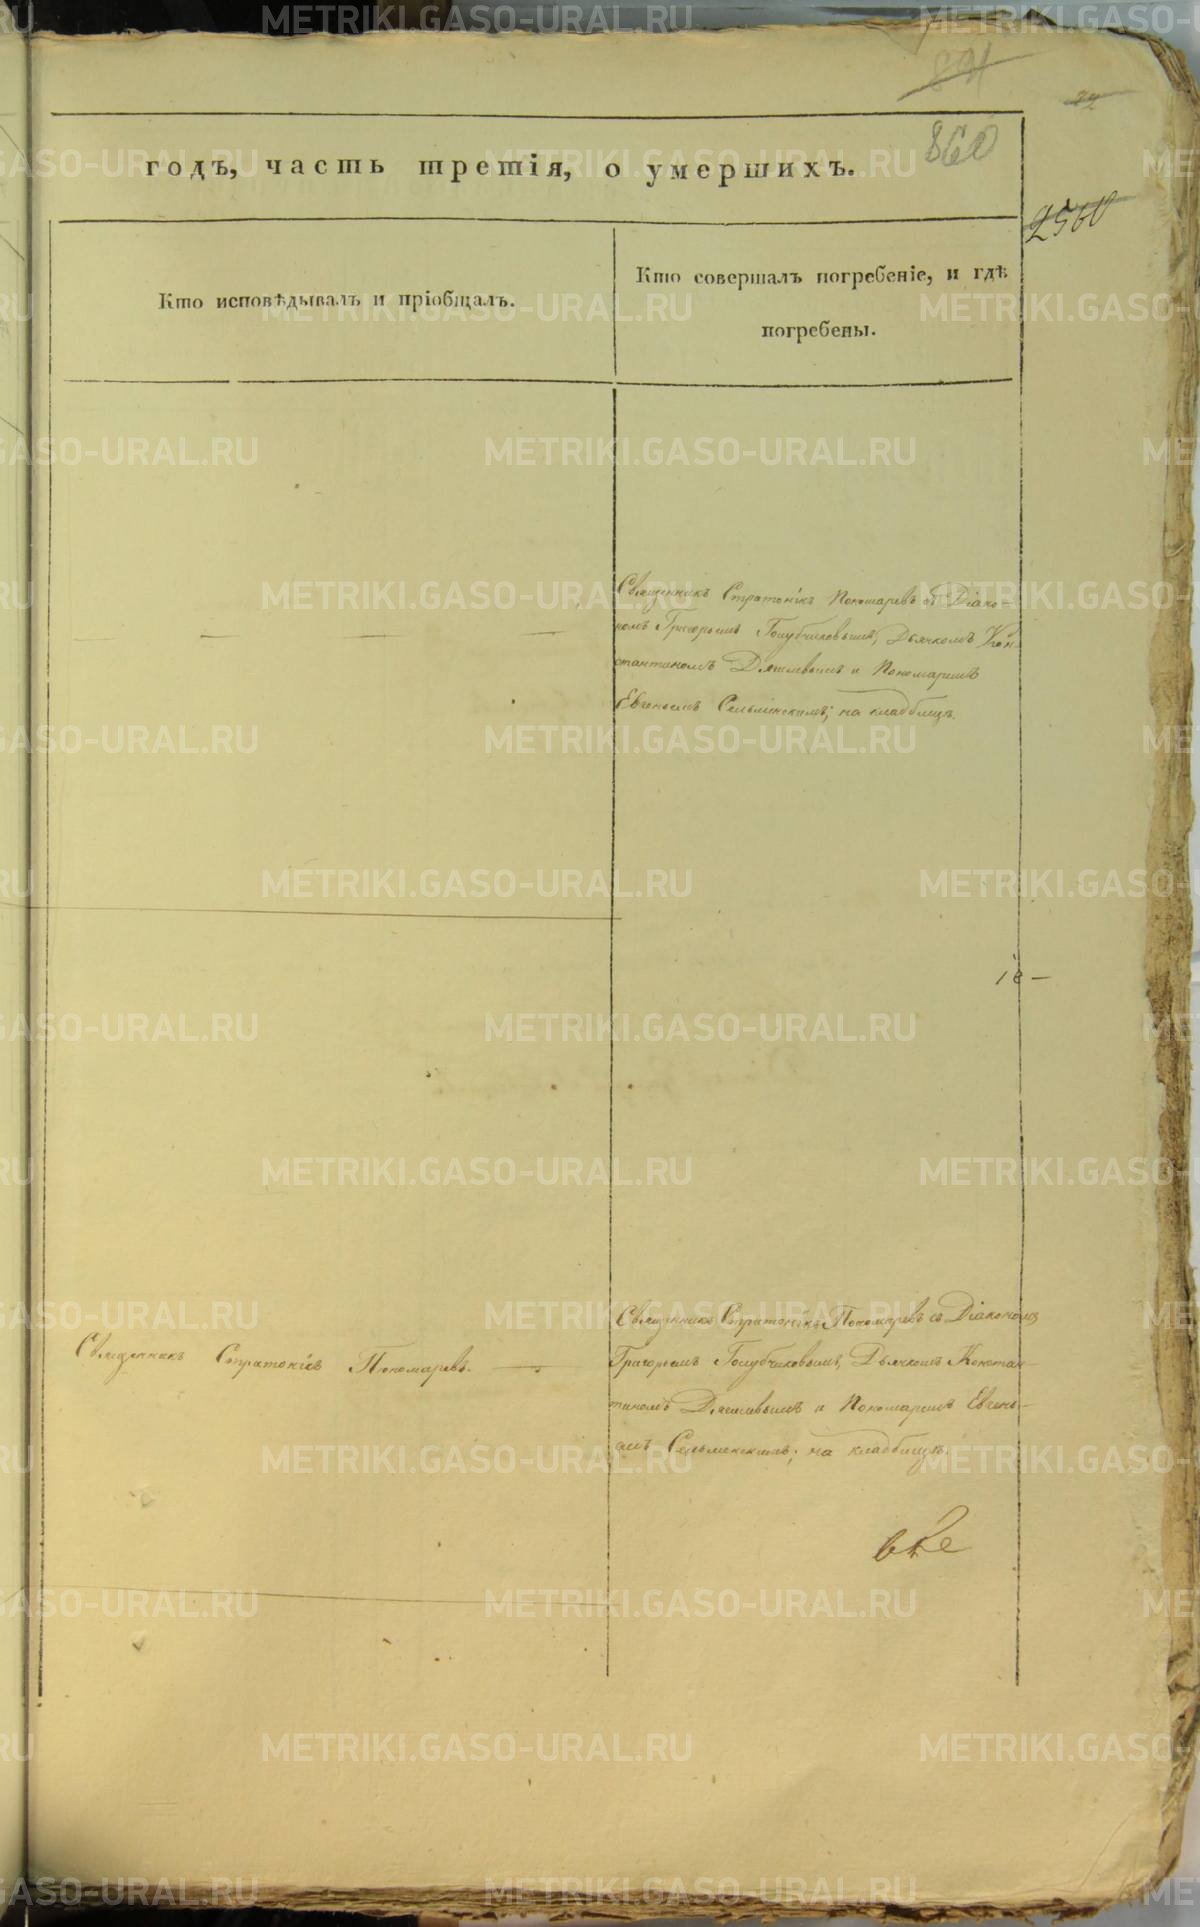 891
860
годъ, часть третія, о умершихъ.
2560
Кто исповѣдывалъ и пріобщалъ.
Кто совершалъ погребеніе, и гдѣ
погребены.
Священникъ Стратоникъ Пономаревъ съ Діако-
номъ Григорьемъ Голубчиковымъ, Дьячкомъ Кон-
стантиномъ и Пономаремъ
Евгеньемъ на кладбищѣ.
Священникъ Стратоникъ Пономаревъ.
Священникъ Стратоникъ Пономаревъ съ Діакономъ
Григорьемъ Голубчиковымъ, Дьячкомъ Констан-
тиномъ и Пономаремъ Евгень-
емъ на кладбищѣ.
METRIKI.GASO-URAL.RU